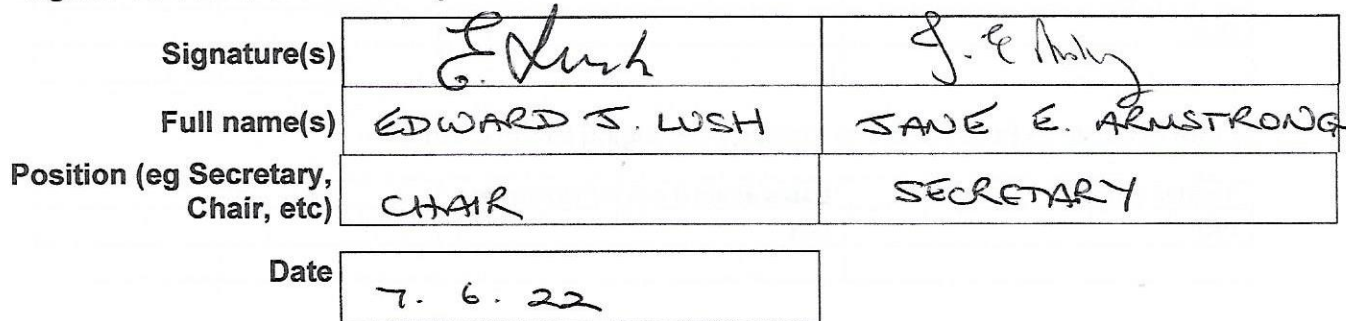 Signature(s) E. Lush J. E
Full name(s) EDWARD J. LUSH JANE E. ARMSTRONG
Position (eg Secretary,
Chair, etc) CHAIR SECRETARY
Date 7. 6. 22